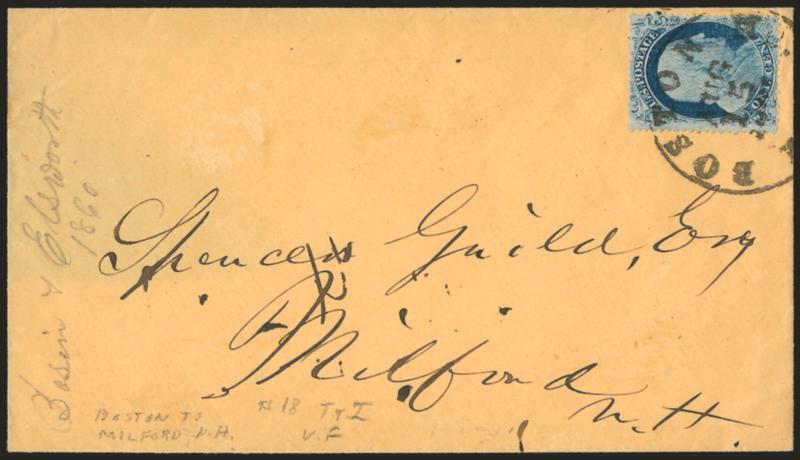 U.S. POSTAGE
ONE CENT
BOSTON
JUL
15
Spencer Guild, Esq
Milford
N. H.
& Elsworth
1860
BOSTON TO
MILFORD, N.H.
# 18 Ty I
V. F